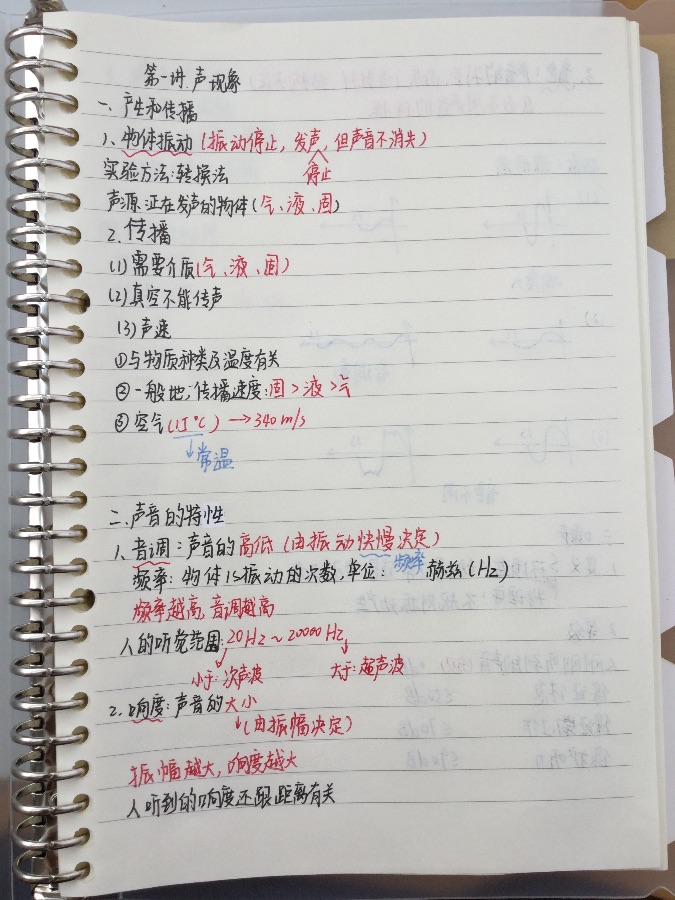 第一讲.声现象
一、产生和传播
1、物体振动(振动停止，发声，但声音不消失)
停止
实验方法:转换法
声源:正在发声的物体(气、液、固)
2、传播
(1)需要介质(气、液、固)
(2)真空不能传声
(3)声速
①与物质种类及温度有关
②一般地,传播速度:固>液>气
③空气(15℃)→340m/s
常温
二.声音的特性
1、音调:声音的高低(由振动快慢决定)
频率
频率:物体1s振动的次数,单位:赫兹(Hz)
频率越高,音调越高
人的听觉范围:20Hz~20000Hz
小于:次声波 大于:超声波
2.响度:声音的大小
(由振幅决定)
振幅越大,响度越大
人听到的响度还跟距离有关